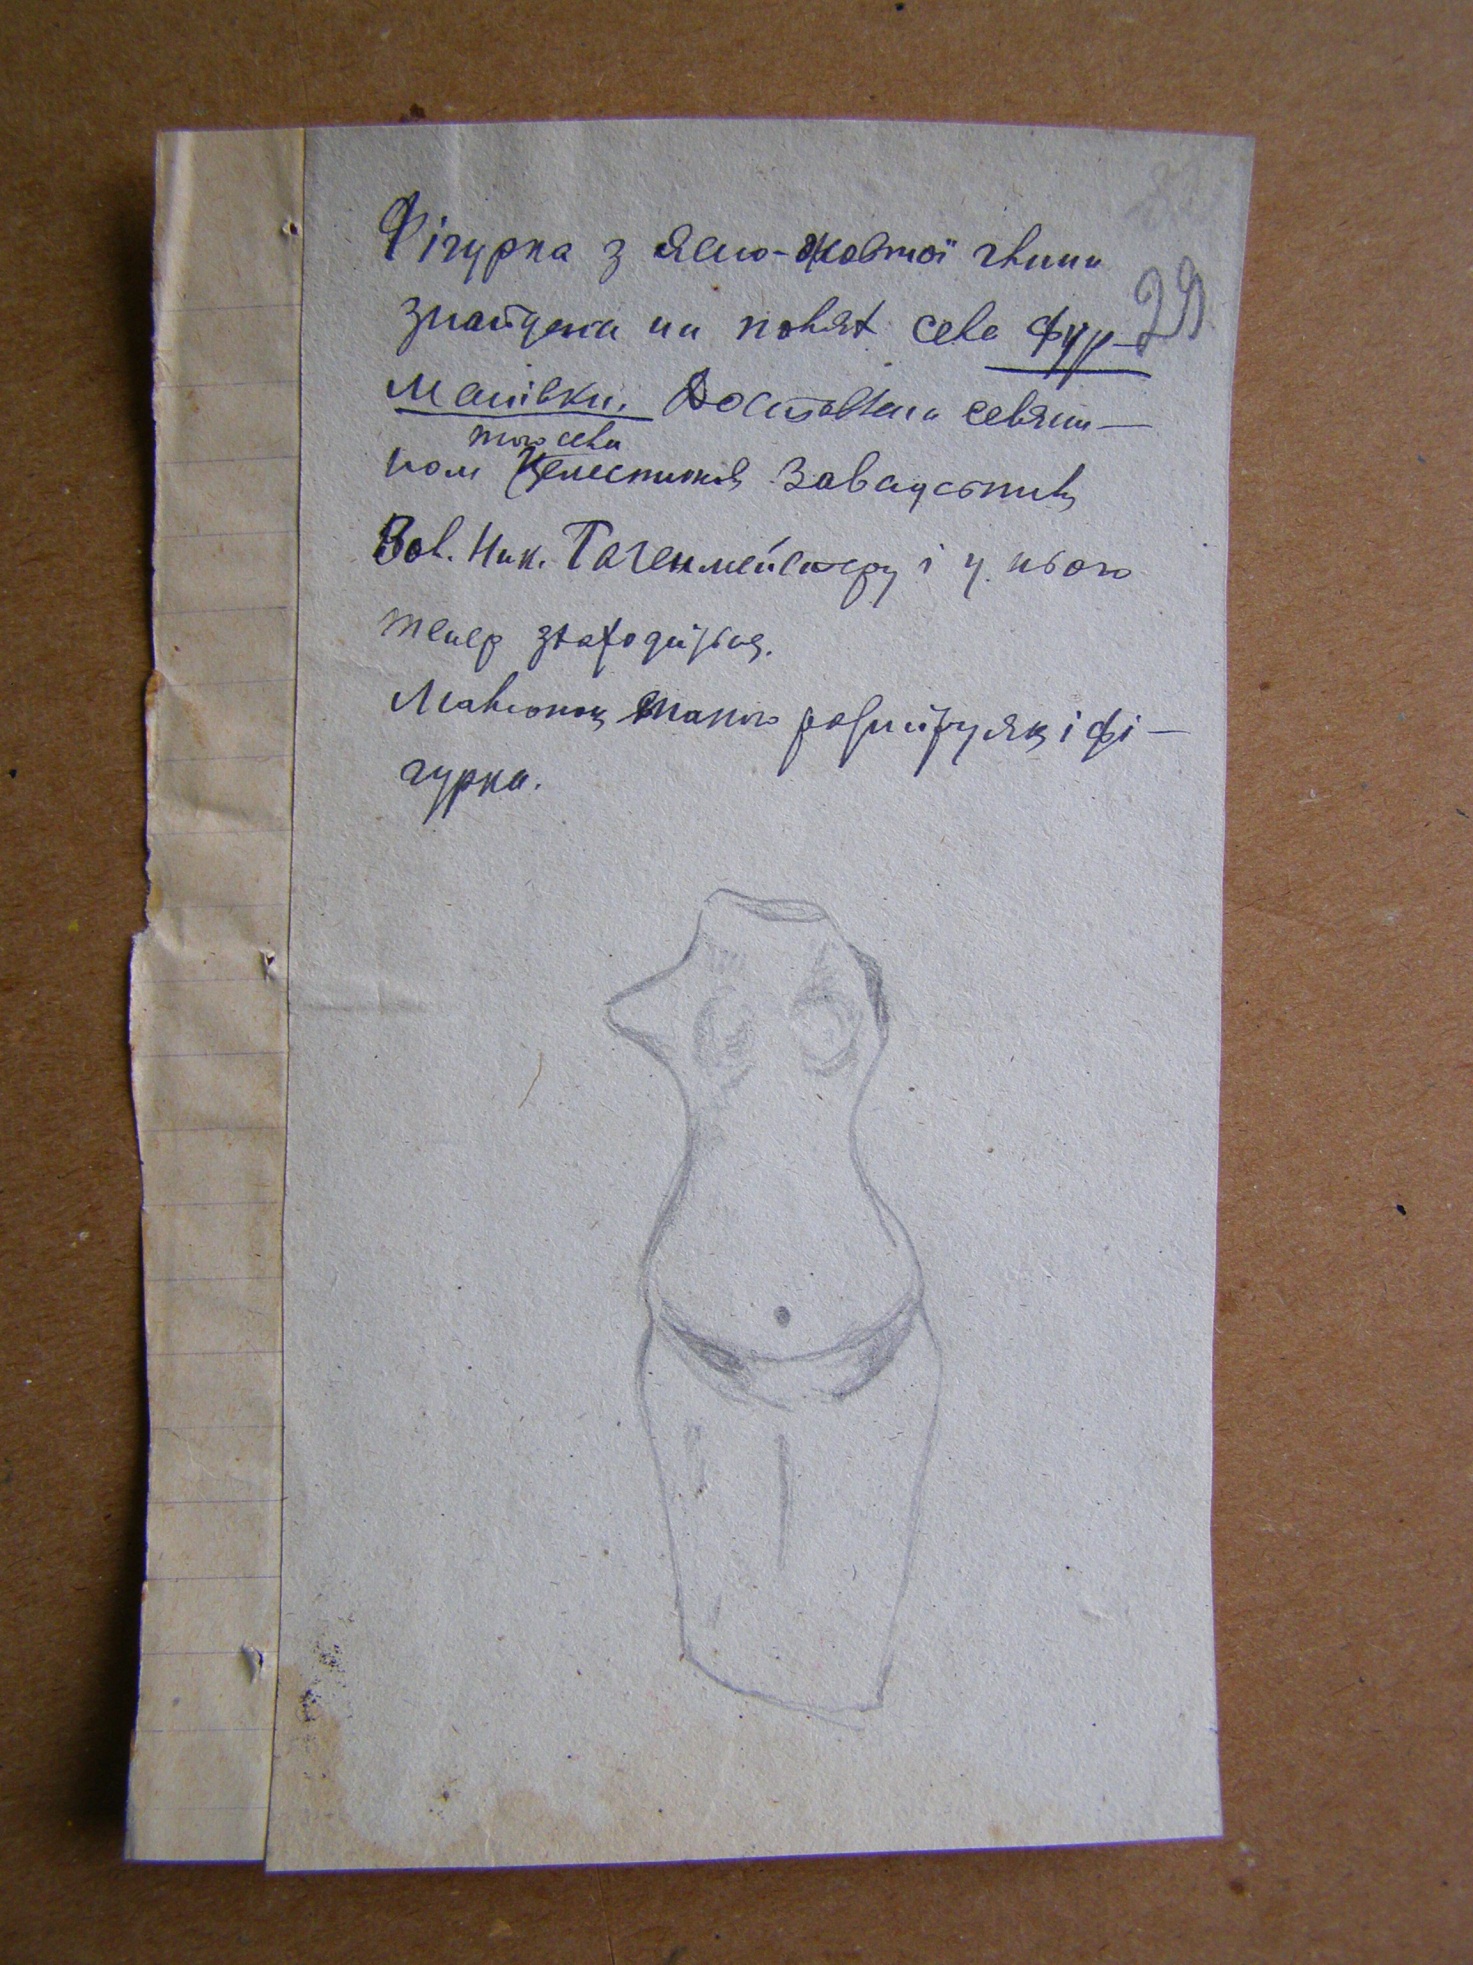 Фігурка з ясно-жовтої глини
29
знайдена на полях села Фур-
манівки. Доставлена селяни-
того села
ном Целестином Завадским
Вол. Ник. Гагенмейстеру і у нього
тепер знаходиться.
Малюнок такого розміру як і фі-
гурка.